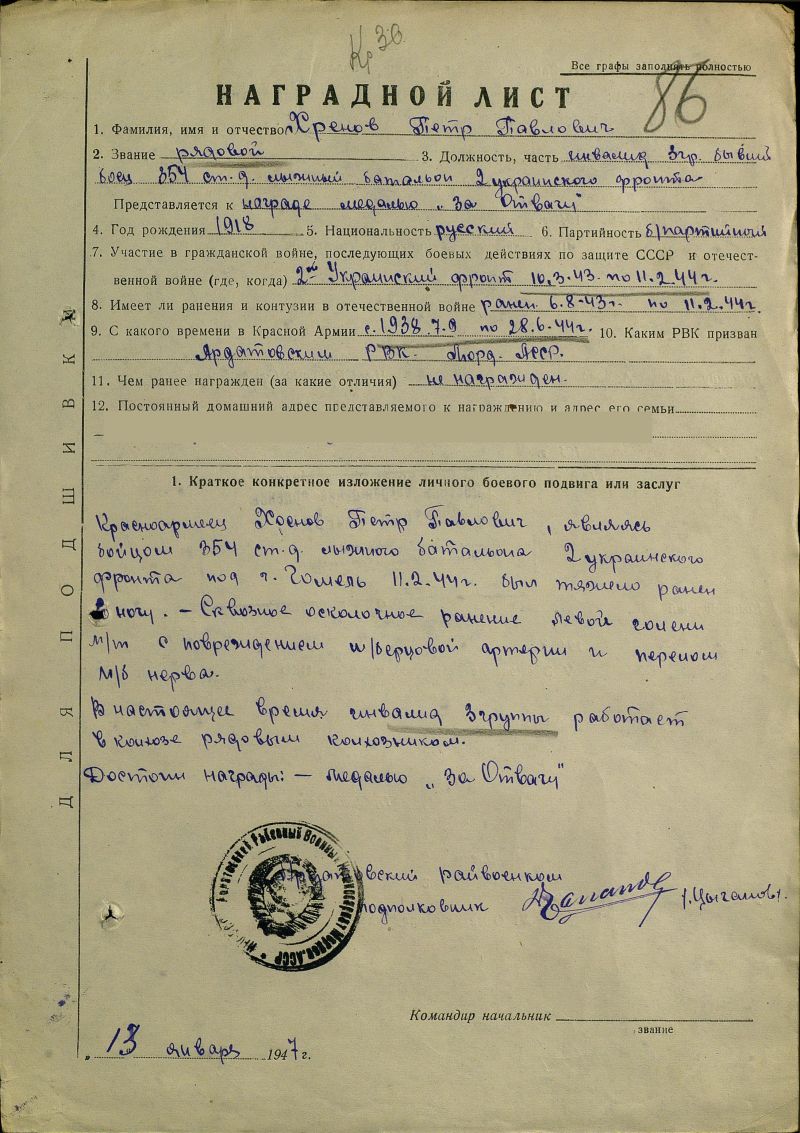 Кр 30
Все графы заполнять полностью
86
НАГРАДНОЙ ЛИСТ
1. Фамилия, имя и отчество Хренов Петр Павлович
2. Звание рядовой 3. Должность, часть инвалид 3 гр. бывший
боец 354 ст.д. лыжный батальон 2 украинского фронта
Представляется к награде медалью „За Отвагу"
4. Год рождения 1918 5. Национальность русский 6. Партийность б/партийный
7. Участие в гражданской войне, последующих боевых действиях по защите СССР и отечест-
венной войне (где, когда) 2ой Украинский фронт 10.3.43. по 11.2.44г.
8. Имеет ли ранения и контузии в отечественной войне ранен 6.8-43г. по 11.2.44г.
9. С какого времени в Красной Армии с.1938.7.9 по 28.6.44г. 10. Каким РВК призван
Ардатовским РВК. Морд. АССР.
11. Чем ранее награжден (за какие отличия) не награжден.
12. Постоянный домашний адрес представляемого к награждению и адрес его семьи
1. Краткое конкретное изложение личного боевого подвига или заслуг
Красноармеец Хренов Петр Павлович, являясь
бойцом 354 ст.д. лыжного батальона 2 украинского
фронта под г. Гомель 11.2.44г. был тяжело ранен
в ногу. – Сквозное осколочное ранение левой голени
м/т с повреждением м/берцовой артерии и перелом
м/б нерва.
В настоящее время инвалид 3 группы работает
в колхозе рядовым колхозником.
Достоин награды: – медалью „За Отвагу"
Ардатовский райвоенком
подполковник /Цыганов/.
Командир начальник
звание
„ 13 января 1947 г.
ДЛЯ ПОДШИВКИ